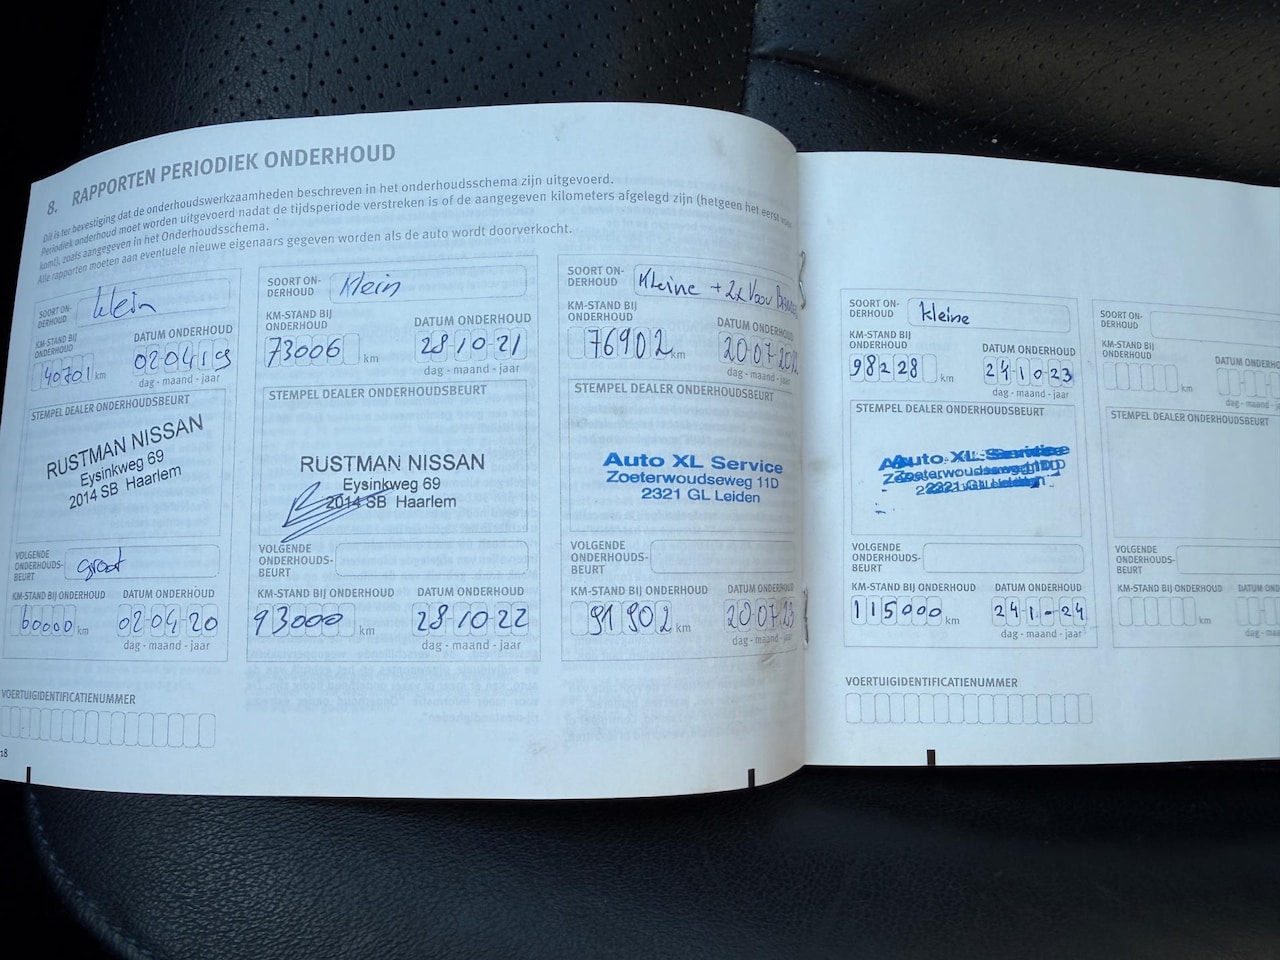 8. RAPPORTEN PERIODIEK ONDERHOUD
Dit is ter bevestiging dat de onderhoudswerkzaamheden beschreven in het onderhoudsschema zijn uitgevoerd.
Periodiek onderhoud moet worden uitgevoerd nadat de tijdsperiode verstreken is of de aangegeven kilometers afgelegd zijn (hetgeen het eerst
komt), zoals aangegeven in het Onderhoudsschema.
Alle rapporten moeten aan eventuele nieuwe eigenaars gegeven worden als de auto wordt doorverkocht.
SOORT ON-
DERHOUD
klein
KM-STAND BIJ
ONDERHOUD
DATUM ONDERHOUD
40701 km
02 04 19
dag - maand - jaar
STEMPEL DEALER ONDERHOUDSBEURT
RUSTMAN NISSAN
Eysinkweg 69
2014 SB Haarlem
VOLGENDE
ONDERHOUDS-
BEURT
groot
KM-STAND BIJ ONDERHOUD
DATUM ONDERHOUD
60000 km
02-04-20
dag - maand - jaar
VOERTUIGIDENTIFICATIENUMMER
18
SOORT ON-
DERHOUD
Klein
KM-STAND BIJ
ONDERHOUD
DATUM ONDERHOUD
73006 km
28 10 21
dag - maand - jaar
STEMPEL DEALER ONDERHOUDSBEURT
RUSTMAN NISSAN
Eysinkweg 69
2014 SB Haarlem
VOLGENDE
ONDERHOUDS-
BEURT
KM-STAND BIJ ONDERHOUD
DATUM ONDERHOUD
93000 km
28-10-22
dag - maand - jaar
SOORT ON-
DERHOUD
Kleine + 2x Voor
KM-STAND BIJ
ONDERHOUD
DATUM ONDERHOUD
76902 km
20-07
dag - maand - jaar
STEMPEL DEALER ONDERHOUDSBEURT
Auto XL Service
Zoeterwoudseweg 11D
2321 GL Leiden
VOLGENDE
ONDERHOUDS-
BEURT
KM-STAND BIJ ONDERHOUD
DATUM ONDERHOUD
91902 km
20-07-23
dag - maand - jaar
SOORT ON-
DERHOUD
kleine
KM-STAND BIJ
ONDERHOUD
DATUM ONDERHOUD
98228 km
24-10-23
dag - maand - jaar
STEMPEL DEALER ONDERHOUDSBEURT
Auto XL Service
Zoeterwoudseweg 11D
2321 GL Leiden
VOLGENDE
ONDERHOUDS-
BEURT
KM-STAND BIJ ONDERHOUD
DATUM ONDERHOUD
115000 km
241.-24
dag - maand - jaar
VOERTUIGIDENTIFICATIENUMMER
SOORT ON-
DERHOUD
KM-STAND BIJ
ONDERHOUD
DATUM
km
dag - maand - jaar
STEMPEL DEALER ONDERHOUDSBEURT
VOLGENDE
ONDERHOUDS-
BEURT
KM-STAND BIJ ONDERHOUD
DATUM
km
dag - maand - jaar